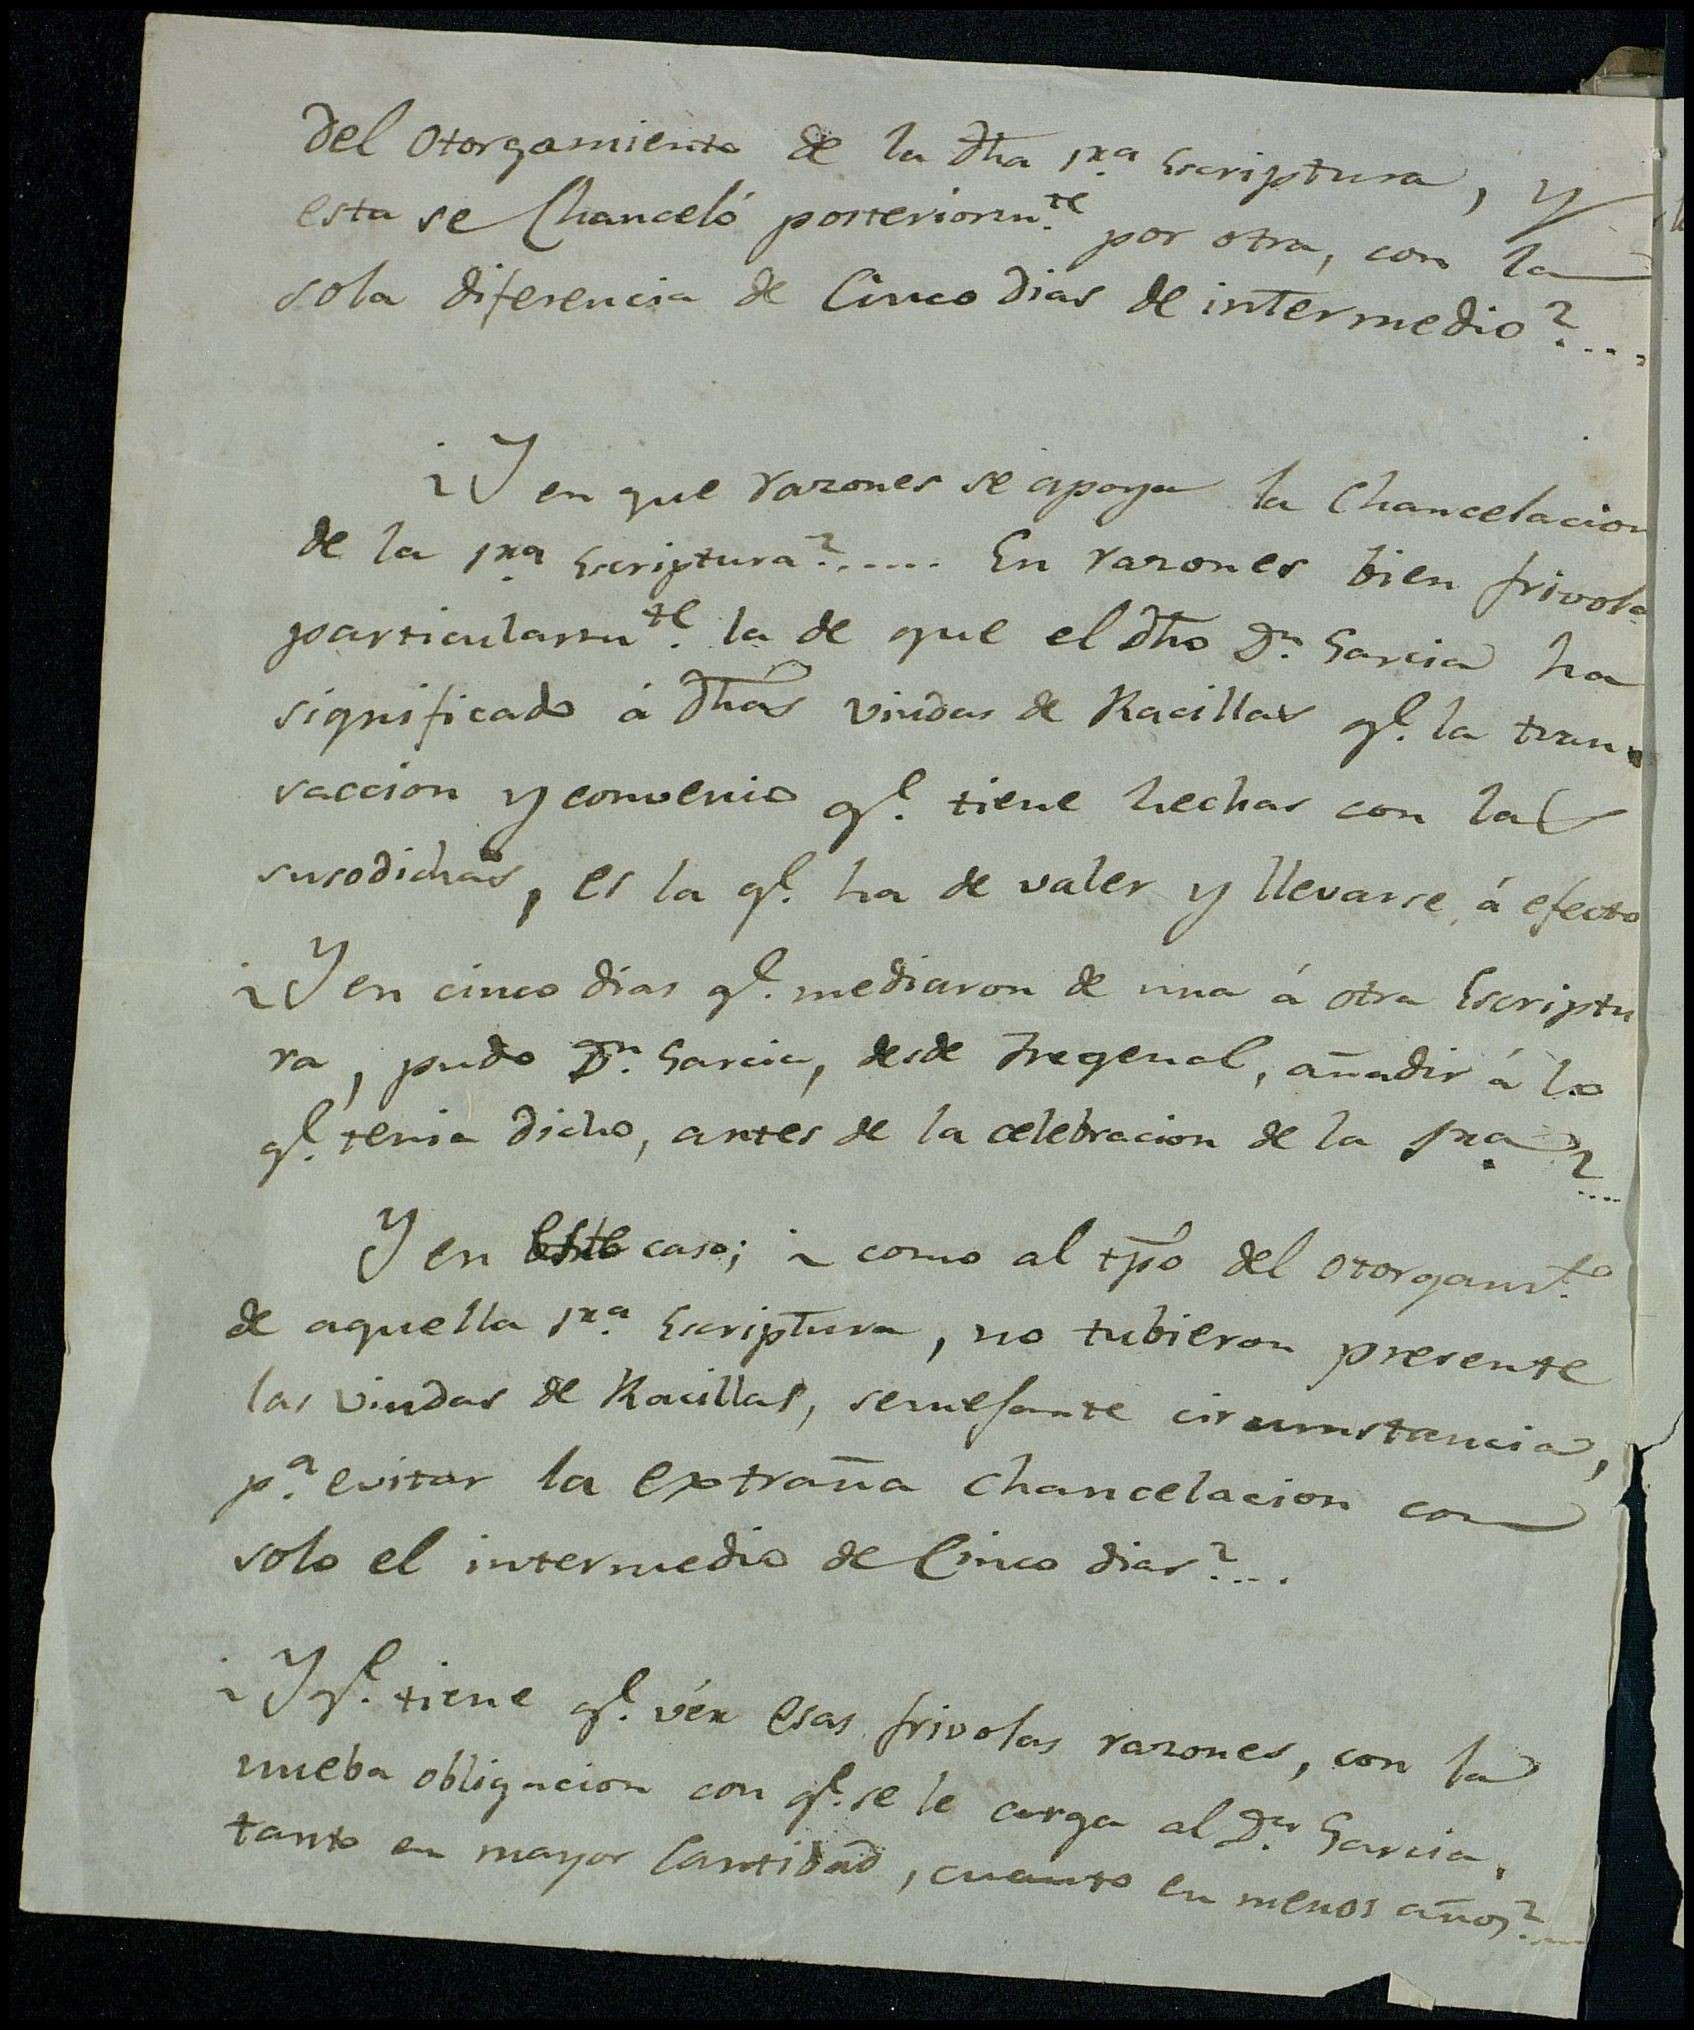 del otorgamiento de la dha 1ra. Escriptura, y
esta se Chanceló posteriormte. por otra, con la
sola diferencia de Cinco dias de intermedio?....
¿Y en que razones se apoya la Chancelacion
de la 1ra. Escriptura?...... En razones bien frivola
particularmte. la de que el dho Dn. Garcia ha
significado á dhas viudas de Racillas ql. la tran-
saccion y convenio ql. tiene hechas con las
susodichas, es la ql. ha de valer y llevarse á efecto
¿Y en cinco dias ql. mediaron de una á otra Escriptu
ra, pudo Dn. Garcia, desde Fregenal, añadir á lo
ql. tenia dicho, antes de la celebracion de la 1ra.?....
Y en este caso; ¿como al tpo del otorgamto.
de aquella 1ra. Escriptura, no tubieron presente
las viudas de Racillas, semejante circumstancia,
pa. evitar la extraña chancelacion con
solo el intermedio de Cinco dias?....
¿Y ql. tiene ql. vér esas frivolas razones, con la
nueba obligacion con ql. se le carga al Dn. Garcia,
tanto en mayor Cantidad, cuanto en menos años?....